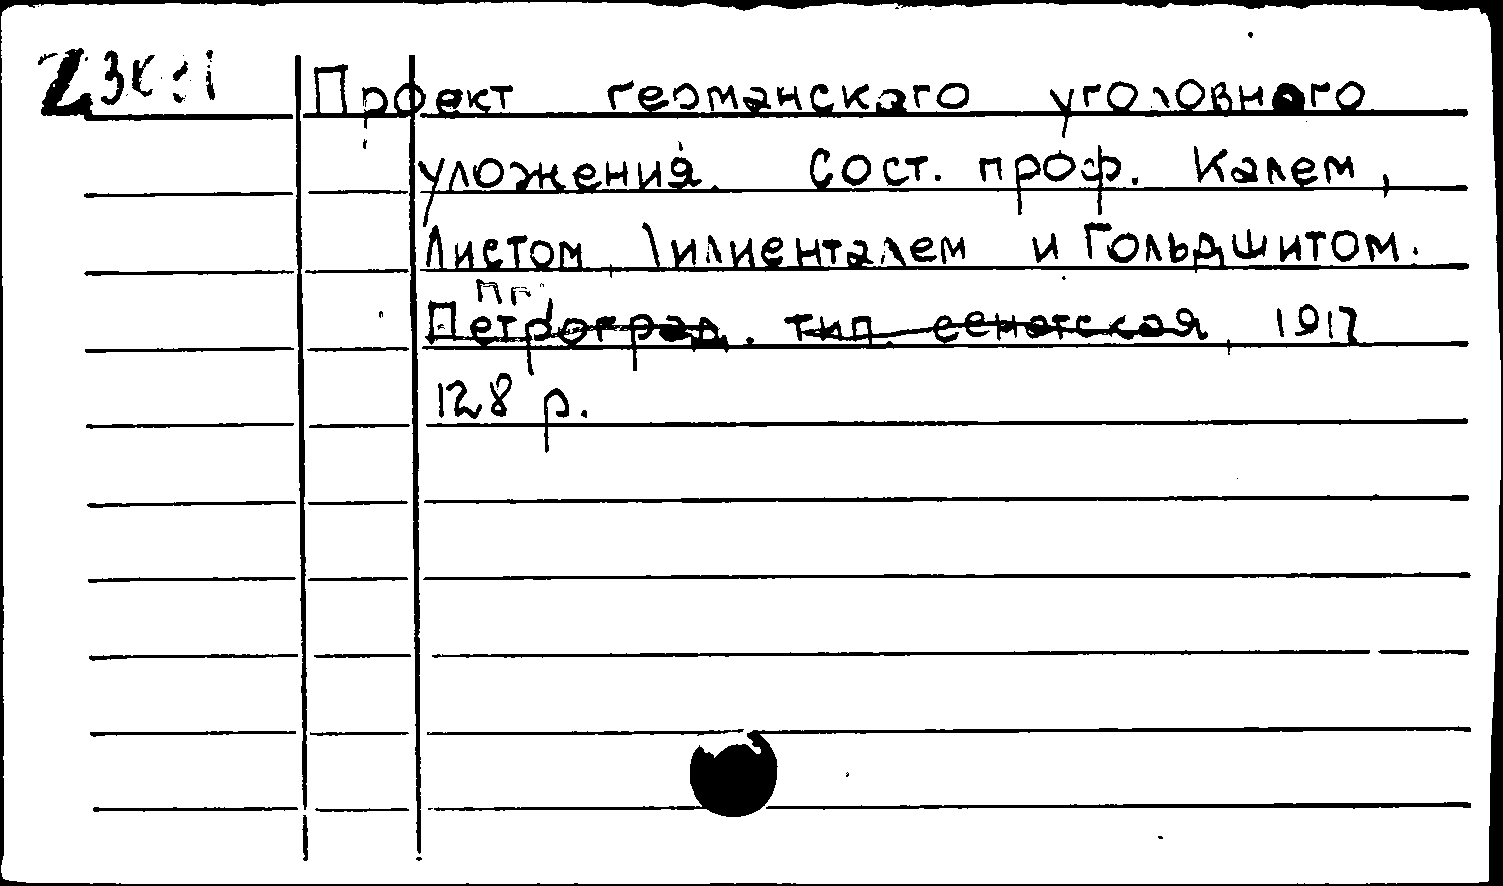 Проект германскаго уголовнаго
уложения. Сост. проф. Калем,
Листом, Лилиенталем и Гольдшитом.
Пг.
Петроград. тип. сенатская, 1917
128 р.